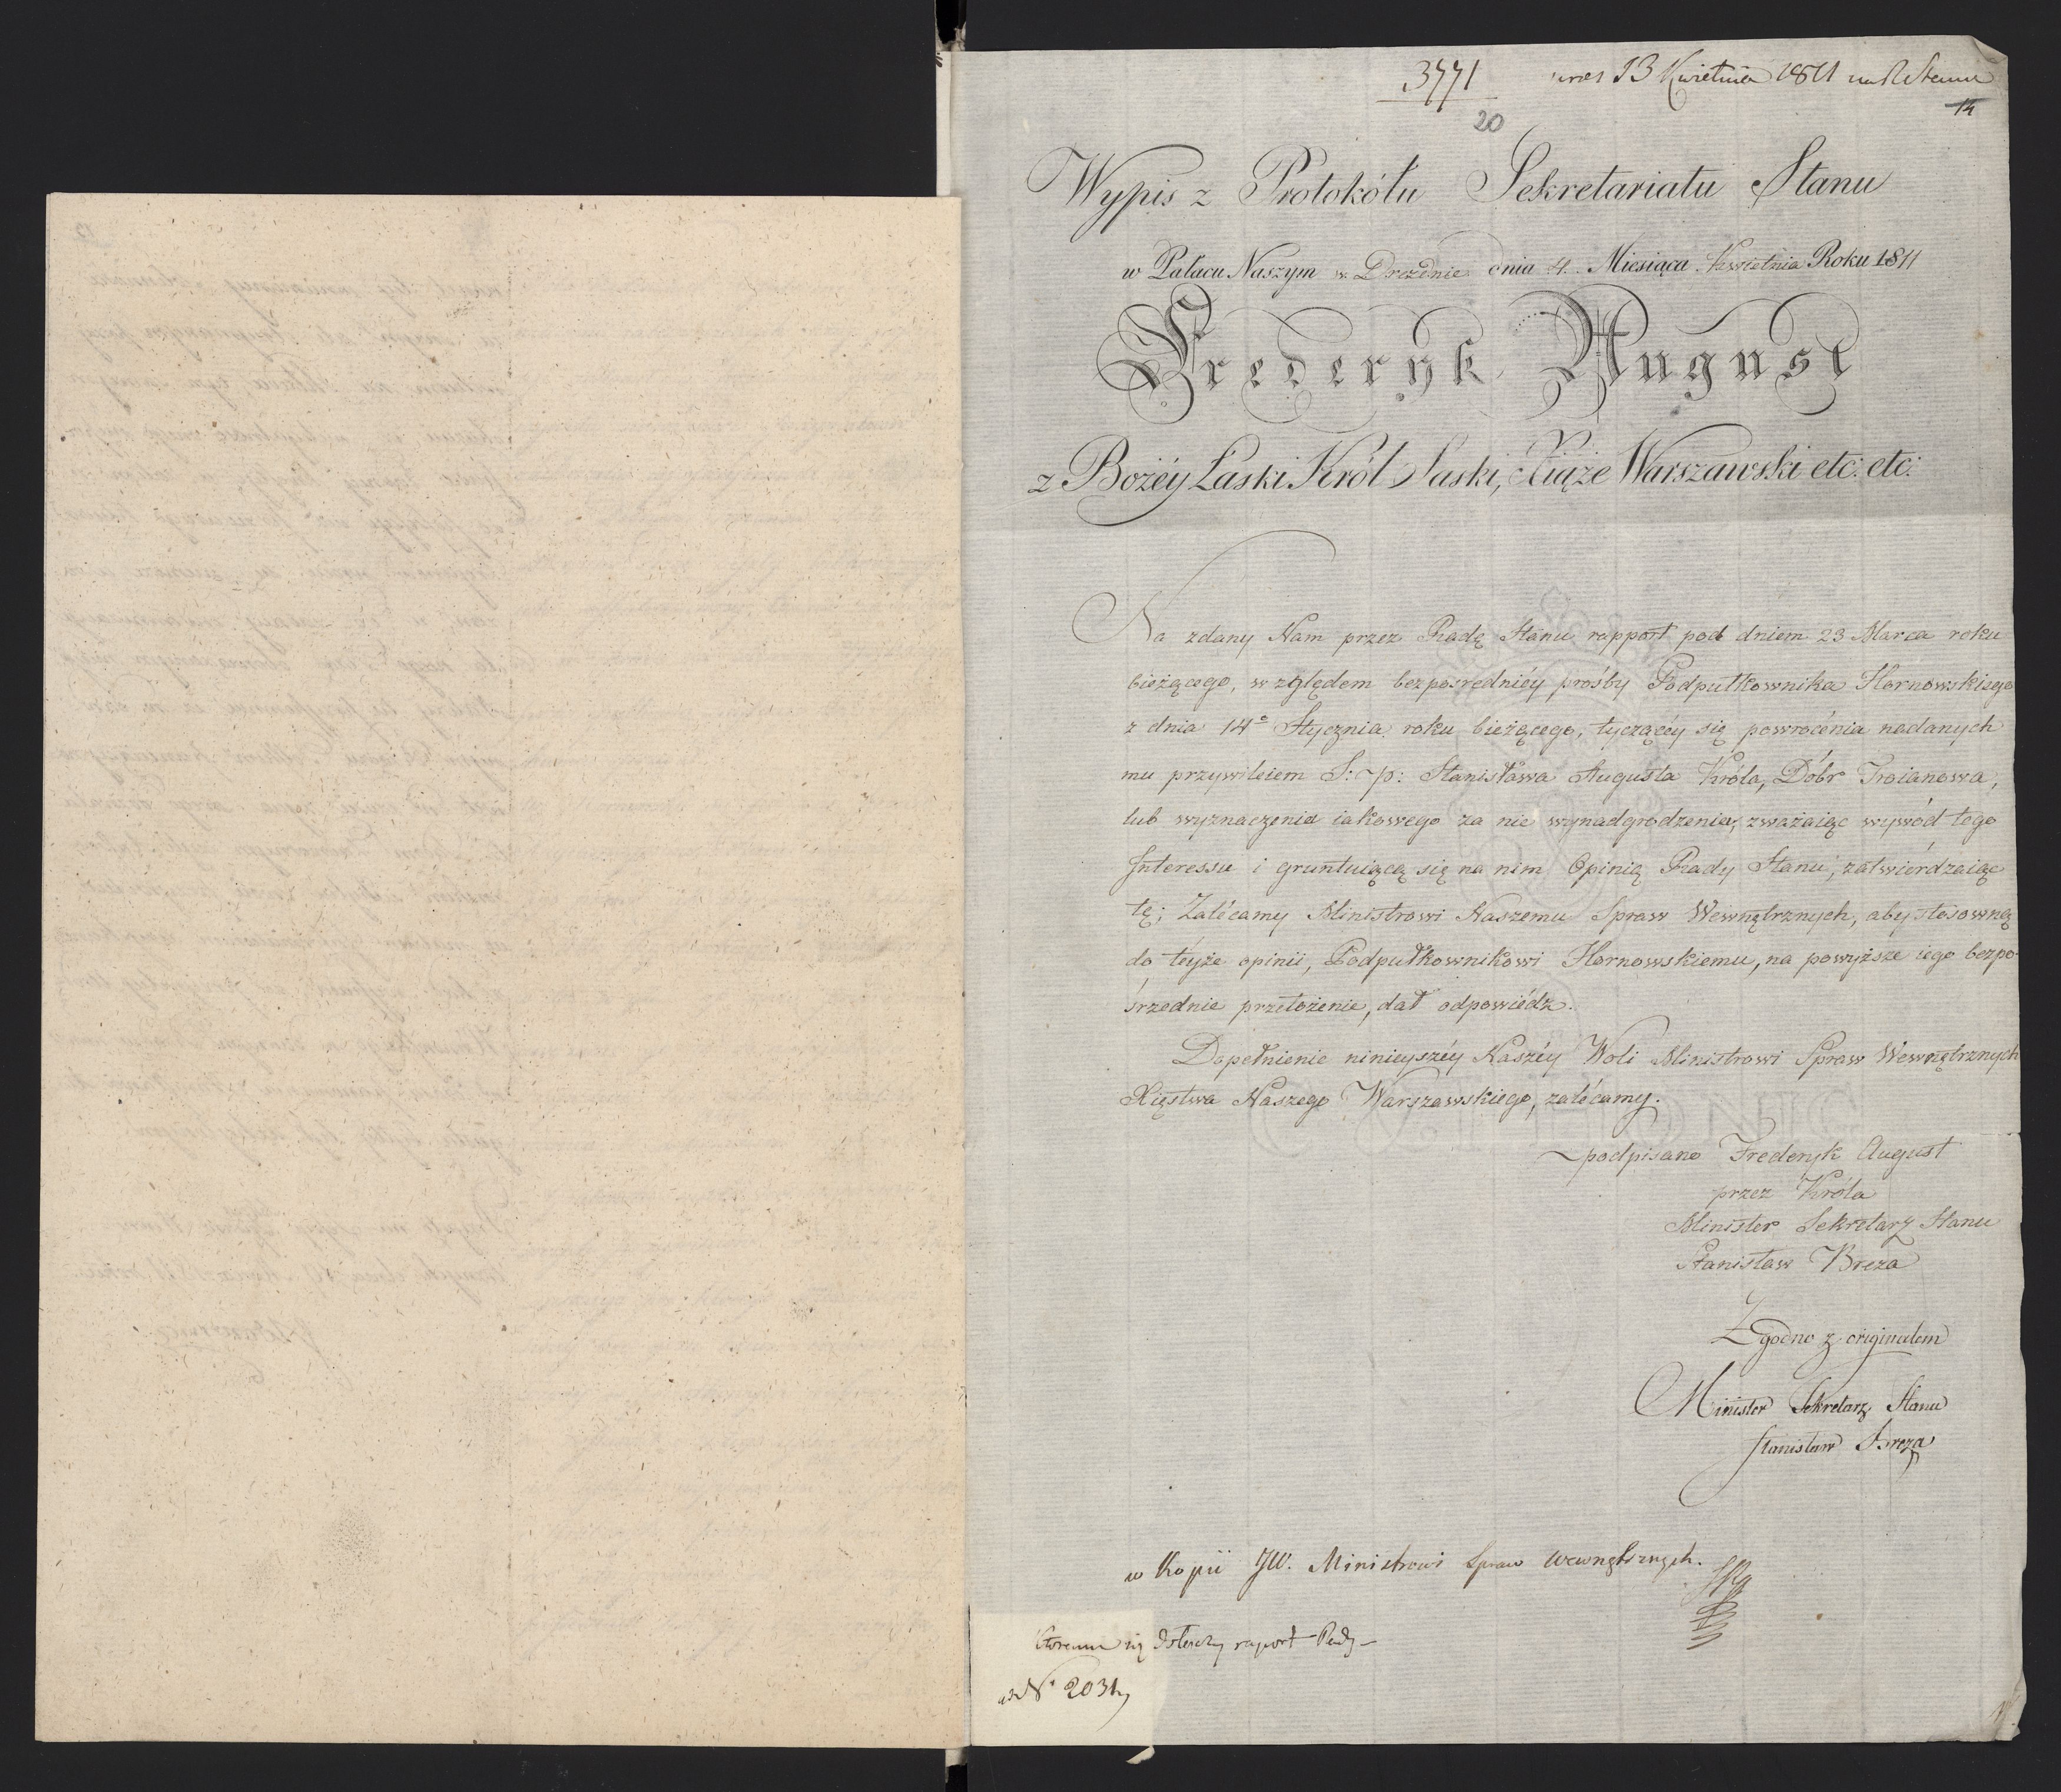 3771
13 Kwietnia 1811
14
20
Wypis z Protokółu Sekretariatu Stanu
w Pałacu Naszym w Dreznie dnia 4. Miesiąca Kwietnia Roku 1811
Frederyk August
z Bożéy Łaski Król Saski, Xiąże Warszawski etc: etc:
Na zdany Nam przez Radę Stanu rapport pod dniem 23 Marca roku
bieżącego, względem bezpośredniéy prośby Podpułkownika Hornowskiego
z dnia 14º Stycznia roku bieżącego, tyczącéy się powrócénia nadanych
mu przywileiem S: p: Stanisława Augusta Króla, Dóbr Troianowa,
lub wyznaczenia iakowego za nie wynadgrodzenia, zważaiąc wywód tego
Interessu i gruntuiącą się na nim Opinią Rady Stanu, zatwiérdzaiąc
tę; Zalécamy Ministrowi Naszemu Spraw Wewnętrznych, aby stosowną
do téyże opinii, Podpułkownikowi Hornowskiemu, na powyższe iego bezpo-
śrzednie przełożenie, dał odpowiédz.
Dopełnienie ninieyszéy Naszéy Woli Ministrowi Spraw Wewnętrznych
Xięstwa Naszego Warszawskiego, zalécamy.
podpisano Frederyk August
przez Króla
Minister Sekretarz Stanu
Stanisław Breza
Zgodno z originałem
Minister Sekretarz Stanu
Stanisław Breza
w Kopii JW. Ministrowi Spraw Wewnętrznych.
raport Rady
Nº 2031